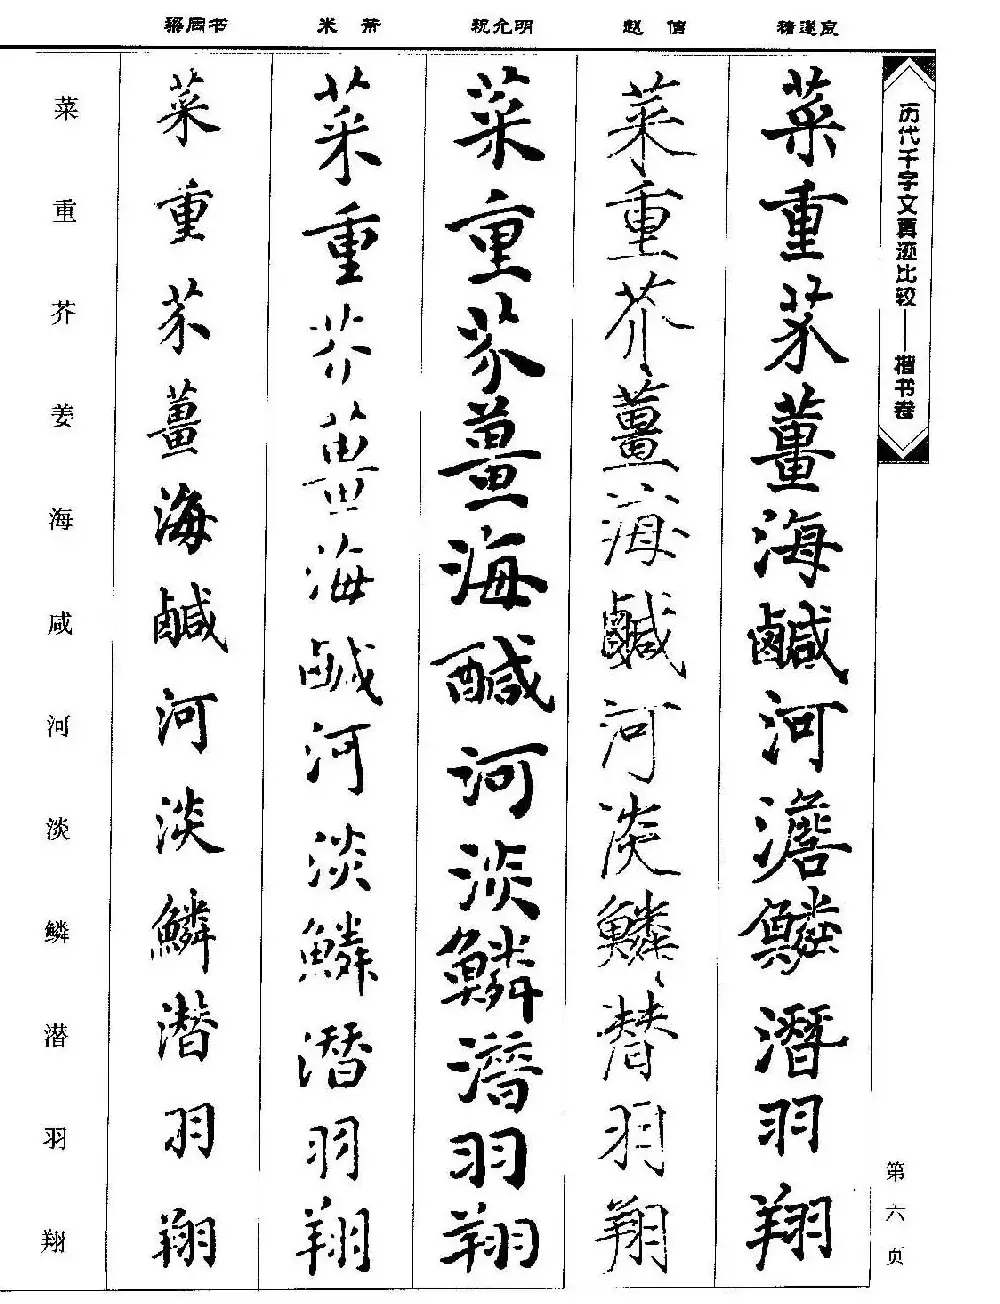 历代千字文真迹比较——楷书卷
第六页
褚遂良
菜重芥薑海鹹河澹鱗潛羽翔
赵佶
菜重芥薑海鹹河淡鱗潛羽翔
祝允明
菜重芥薑海醎河淡鱗潛羽翔
米芾
菜重芥薑海鹹河淡鱗潛羽翔
梁同书
菜重芥薑海鹹河淡鱗潛羽翔
菜重芥姜海咸河淡鳞潜羽翔